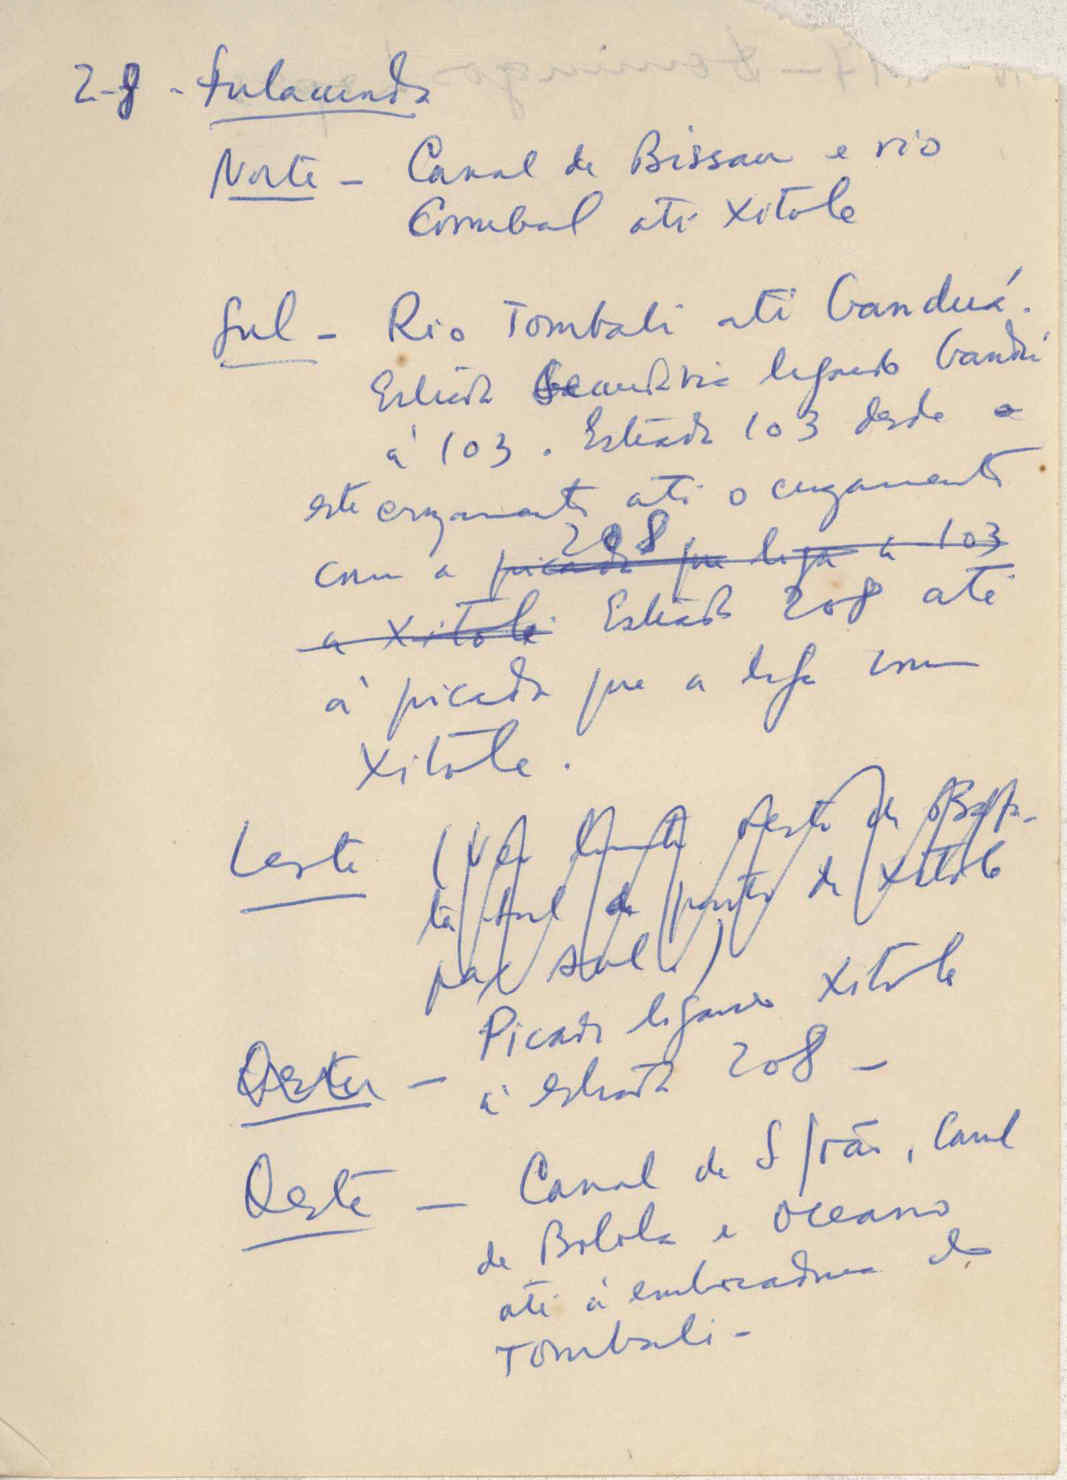 2-8 - Fulacunda
Norte - Canal de Bissau e rio
Corubal até Xitole
Sul - Rio Tombali até Ganduá.
Estrada secundária ligando Ganduá
à 103. Estrada 103 desde o
este cruzamento até o cruzamento
208
com a picada que liga a 103
a Xitole Estrada 208 até
à picada que a liga com
Xitole.
Leste (Ver limite oeste de
sul do posto de Xitole
para sul)
Picada ligando Xitole
Oeste - à estrada 208 -
Oeste - Canal de S João, Canal
de Bolola e oceano
até à embocadura do
Tombali -